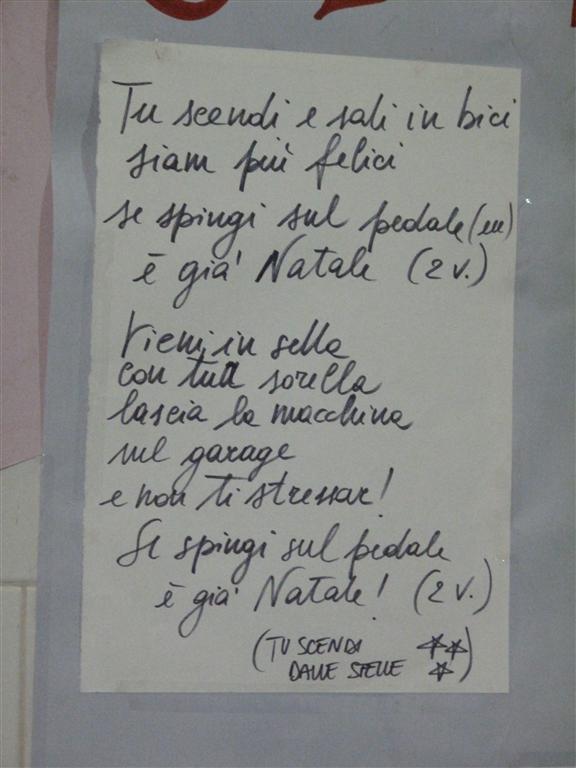 Tu scendi e sali in bici
siam più felici
se spingi sul pedale (ee)
è già Natale (2 v.)
Vieni in sella
con tua sorella
lascia la macchina
nel garage
e non ti stressar!
Se spingi sul pedale
è già Natale! (2 v.)
(TU SCENDI
DALLE STELLE)